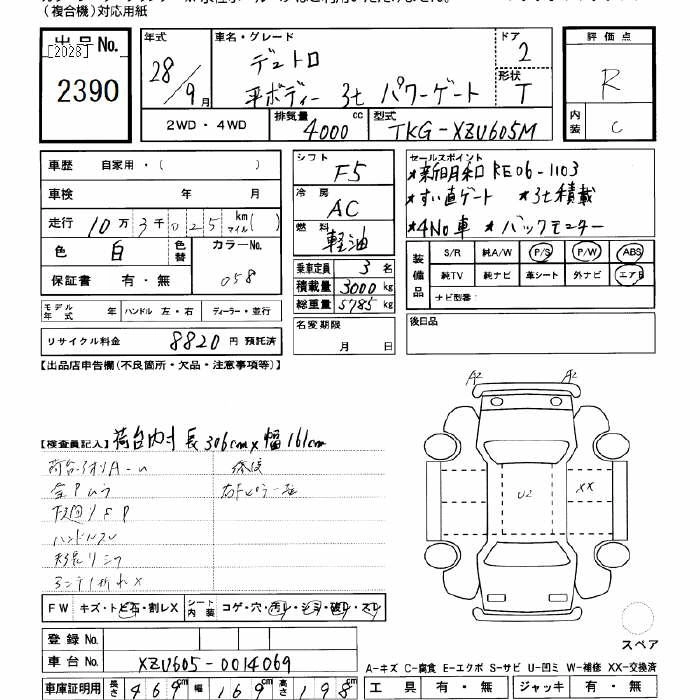 (複合機)対応用紙
出品No.
[2028]
2390
年式
28/9月
車名・グレード
デュトロ
平ボディー 3t パワーゲート
ドア
2
形状
T
評価点
R
内装
C
2WD・4WD
排気量
4000 cc
型式
TKG-XZU605M
車歴 自家用・( )
車検 年 月
走行 10万3千025 km マイル( )
色 白
色替
カラーNo.
058
保証書 有・無
モデル年式 年 ハンドル 左・右 ディーラー・並行
リサイクル料金 8820円 預託済
シフト
F5
冷房
AC
燃料
軽油
乗車定員 3名
積載量 3000kg
総重量 5785kg
名変期限
月 日
セールスポイント
★新明和 RE06-1103
★すい直ゲート ★3t積載
★4No車 ★バックモニター
装備品
S/R 純A/W P/S P/W ABS
純TV 純ナビ 革シート 外ナビ エアB
ナビ型番:
後日品
【出品店申告欄(不良箇所・欠品・注意事項等)】
A2 A2
【検査員記入】荷台内寸 長306cm×幅161cm
U2 XX
ハンドル
FW キズ・トビ石・割レX シート内装 コゲ・穴・汚レ・シミ・破レ・スレ
スペア
登録No.
車台No. XZU605-0014069
A-キズ C-腐食 E-エクボ S-サビ U-凹ミ W-補修 XX-交換済
車庫証明用 長さ 469cm 幅 169cm 高さ 198cm
工具 有・無 ジャッキ 有・無